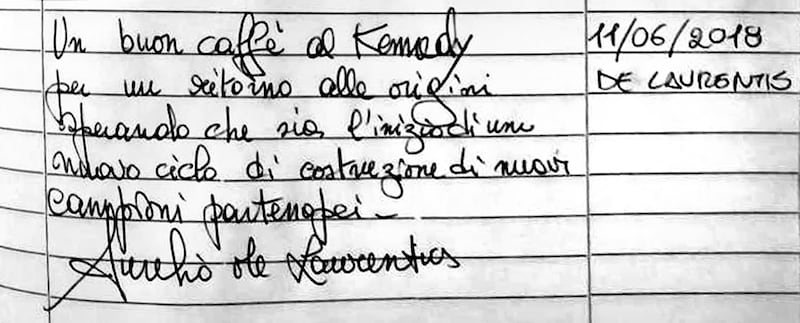 Un buon caffè al Kennedy
per un ritorno alle origini
sperando che sia l'inizio di un
nuovo ciclo di costruzione di nuovi
campioni partenopei -
Aurelio De Laurentiis
11/06/2018
DE LAURENTIS